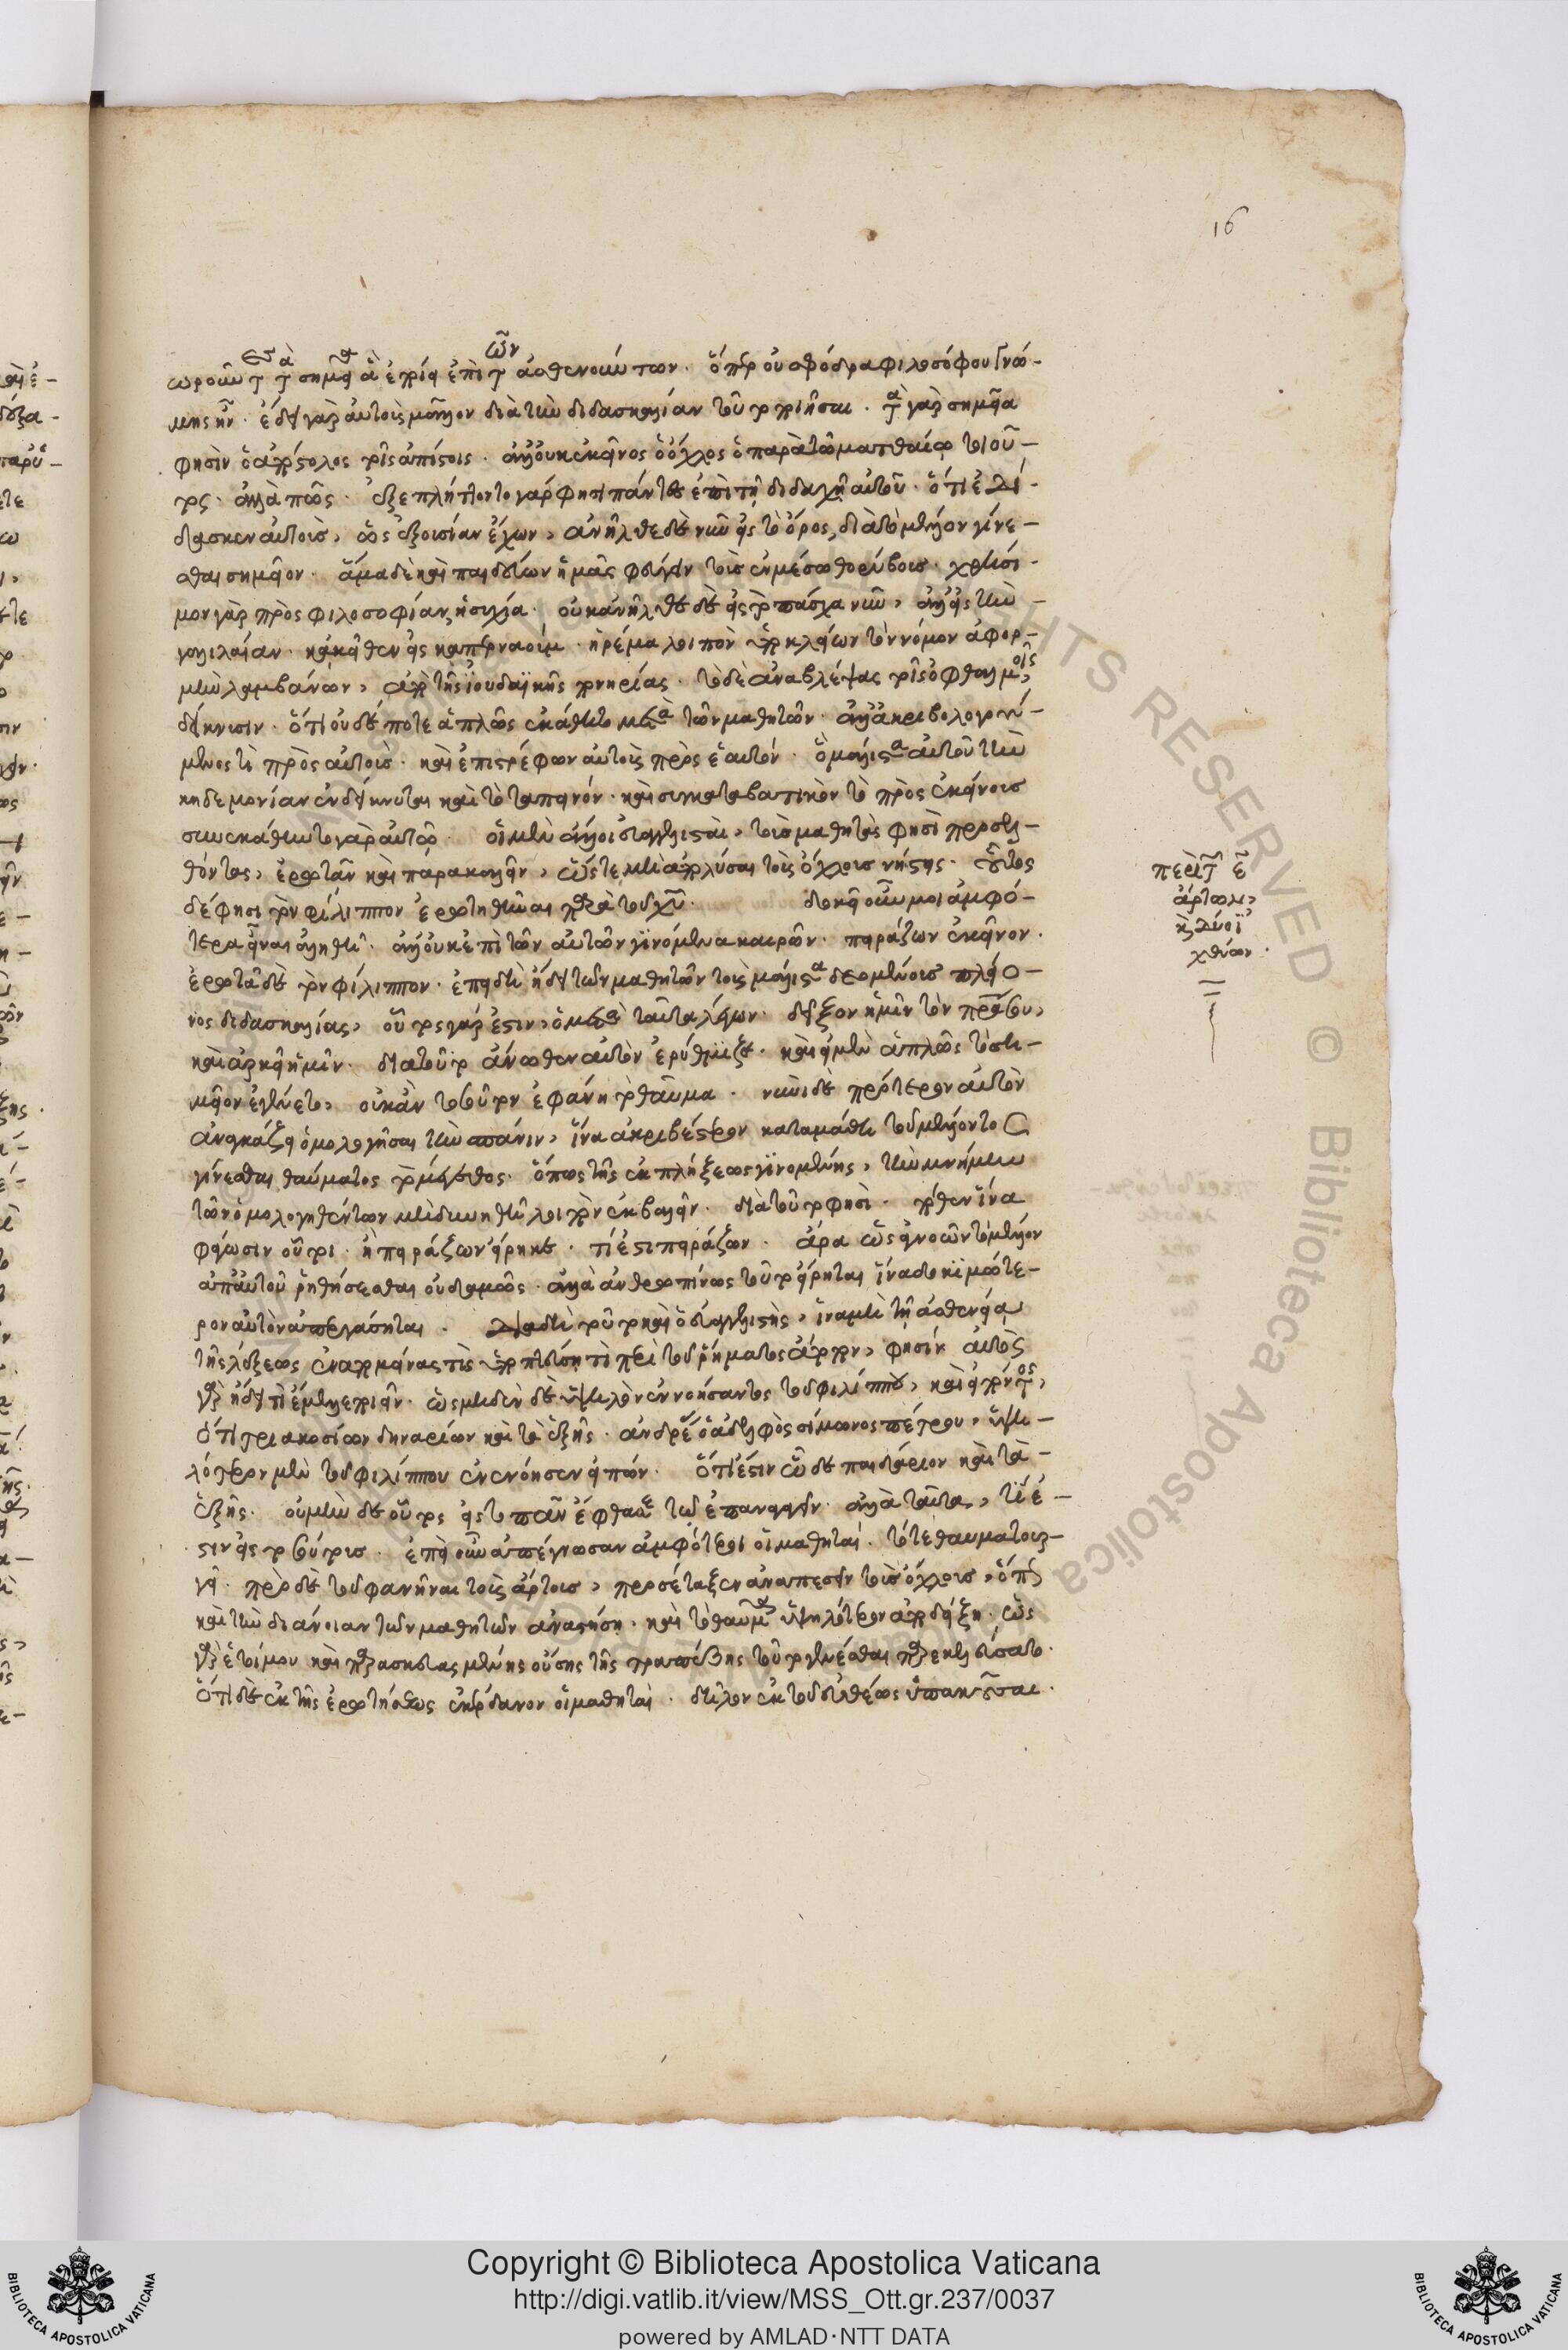 16
ωροῦν τὰ σημεῖα ἃ ἐποίει ἐπὶ τῶν ἀσθενούντων. ὅπερ οὐ σφόδρα φιλοσόφου γνώ-
μης ἦν. ἔδει γὰρ αὐτοὺς μᾶλλον διὰ τὴν διδασκαλίαν τοῦτο ποιῆσαι. τὰ γὰρ σημεῖα
φησὶν ὁ ἀπόστολος τοῖς ἀπίστοις. ἀλλ' οὐκ ἐκεῖνος ὁ ὄχλος ὁ παρὰ τῶ ματθαίω τοιοῦ-
τος. ἀλλὰ πῶς. ἐξεπλήττοντο γάρ φησι πάντες ἐπὶ τῆ διδαχῆ αὐτοῦ. ὅτι ἐδί-
δασκεν αὐτοὺς, ὡς ἐξουσίαν ἔχων, ἀνῆλθε δὲ νῦν εἰς τὸ ὄρος, διὰ τὸ μέλλον γίνε-
σθαι σημεῖον. ἅμα δὲ καὶ παιδεύων ἡμᾶς φεύγειν τοὺς ἐν μέσω θορύβους. χρήσι-
μον γὰρ πρὸς φιλοσοφίαν ἡσυχία. οὐκ ἀνῆλθε δὲ εἰς τὸ πάσχα νῦν, ἀλλ' εἰς τὴν
γαλιλαίαν. κἀκεῖθεν εἰς καπερναούμ. ἠρέμα λοιπὸν ὑπεκλύων τὸν νόμον ἀφορ-
μὴν λαμβάνων, ἀπὸ τῆς ἰουδαϊκῆς πονηρίας. τὸ δὲ ἀναβλέψας τοῖς ὀφθαλμοῖς,
δείκνυσιν. ὅτι οὐδέποτε ἁπλῶς ἐκάθητο μετὰ τῶν μαθητῶν. ἀλλ' ἀκριβολογού-
μενος τι πρὸς αὐτοὺς. καὶ ἐπιστρέφων αὐτοὺς πρὸς ἑαυτόν. ὃ μάλιστα αὐτοῦ τὴν
κηδεμονίαν ἐνδείκνυται καὶ τὸ ταπεινόν. καὶ συγκαταβατικὸν τὸ πρὸς ἐκείνους
συνεκάθητο γὰρ αὐτῶ. οἱ μὲν ἄλλοι εὐαγγελισταὶ, τοὺς μαθητάς φησι προσελ-
θόντας, ἐρωτᾶν καὶ παρακαλεῖν, ὥστε μὴ ἀπολύσαι τοὺς ὄχλους νήστεις. οὗτος
δέ φησι τὸν φίλιππον ἐρωτηθῆναι παρὰ τοῦ χυ. δοκεῖ οὖν μοι ἀμφό-
τερα εἶναι ἀληθῆ. ἀλλ' οὐκ ἐπὶ τῶν αὐτῶν γινόμενα καιρῶν.
ἐρωτᾶ δὲ τὸν φίλιππον. ἐπειδὴ ἤδει τῶν μαθητῶν τοὺς μάλιστα δεομένους πλείο-
νος διδασκαλίας, οὗτος γάρ ἐστιν, ὁ μετὰ ταῦτα λέγων. δεῖξον ἡμῖν τὸν πρα σου,
καὶ ἀρκεῖ ἡμῖν. διὰ τοῦτο ἄνωθεν αὐτὸν ἐρύθμιζε. καὶ εἰ μὲν ἁπλῶς τὸ ση-
μεῖον ἐγένετο, οὐκ ἂν τοσοῦτον ἐφάνη τὸ θαῦμα. νυνὶ δὲ πρότερον αὐτὸν
ἀναγκάζει ὁμολογῆσαι τὴν σπάνιν, ἵνα ἀκριβέστερον καταμάθη τοῦ μέλλοντος
γίνεσθαι θαύματος τὸ μέγεθος. ὅπως τῆς ἐκπλήξεως γινομένης, τὴν μνήμην
τῶν ὁμολογηθέντων μὴ δυνηθῆ λοιπὸν ἐκβαλεῖν. διὰ τοῦτο φησὶ. πόθεν ἵνα
φάγωσιν οὗτοι. ἢ πειράζων εἴρηκε. τί ἐστι πειράζων. ἆρα ὡς ἀγνοῶν τὸ μέλλον
ἀπ' αὐτοῦ ῥηθήσεσθαι οὐδαμῶς. ἀλλὰ ἀνθρωπίνως τοῦτο εἴρηται ἵνα δοκιμώτε-
ρον αὐτὸν ἀπεργάσηται. διὰ δὴ τοῦτο καὶ ὁ εὐαγγελιστὴς, ἵνα μὴ τῆ ἀσθενεία
τῆς λέξεως ἐναπομείνας τις ὑποπτεύση τι περὶ τοῦ ῥήματος ἄτοπον, φησίν αὐτὸς
γὰρ ἤδει τί ἔμελλε ποιεῖν. ὡς μηδὲν δὲ ὑψηλὸν ἐννοήσαντος τοῦ φιλίππου, καὶ εἰπόντος,
ὅτι τριακοσίων δηναρίων καὶ τὰ ἑξῆς. ἀνδρέας ὁ ἀδελφὸς σίμωνος πέτρου, ὑψη-
λότερον μὲν τοῦ φιλίππου ἐνενόησεν εἰπών. ὅτι ἔστιν ὧδε παιδάριον καὶ τὰ
ἑξῆς. οὐ μὴν δὲ οὗτος εἰς τὸ πᾶν ἔφθασε τῶ ἐπαγαγεῖν. ἀλλὰ ταῦτα, τί ἐ-
στιν εἰς τοσούτους. ἐπεὶ οὖν ἀπέγνωσαν ἀμφότεροι οἱ μαθηταί. τότε θαυματουρ-
γεῖ. πρὸ δὲ τοῦ φανῆναι τοὺς ἄρτους, προσέταξεν ἀναπεσεῖν τοὺς ὄχλους, ὅπως
καὶ τὴν διάνοιαν τῶν μαθητῶν ἀναστήση. καὶ τὸ θαῦμα ὑψηλότερον ἀποδείξη. ὡς
γὰρ ἑτοίμου καὶ παρασκευασμένης οὔσης τῆς τραπέζης τοῦτο γενέσθαι παρεκελεύσατο.
ὅτι δὲ ἐκ τῆς ἐρωτήσεως ἐκέρδανον οἱ μαθηταὶ. δῆλον ἐκ τοῦ εὐθέως ὑπακοῦσαι.
περὶ τῶν ε
ἄρτων,
κ δύο ἰ
χθύων.
Copyright © Biblioteca Apostolica Vaticana
http://digi.vatlib.it/view/MSS_Ott.gr.237/0037
powered by AMLAD·NTT DATA